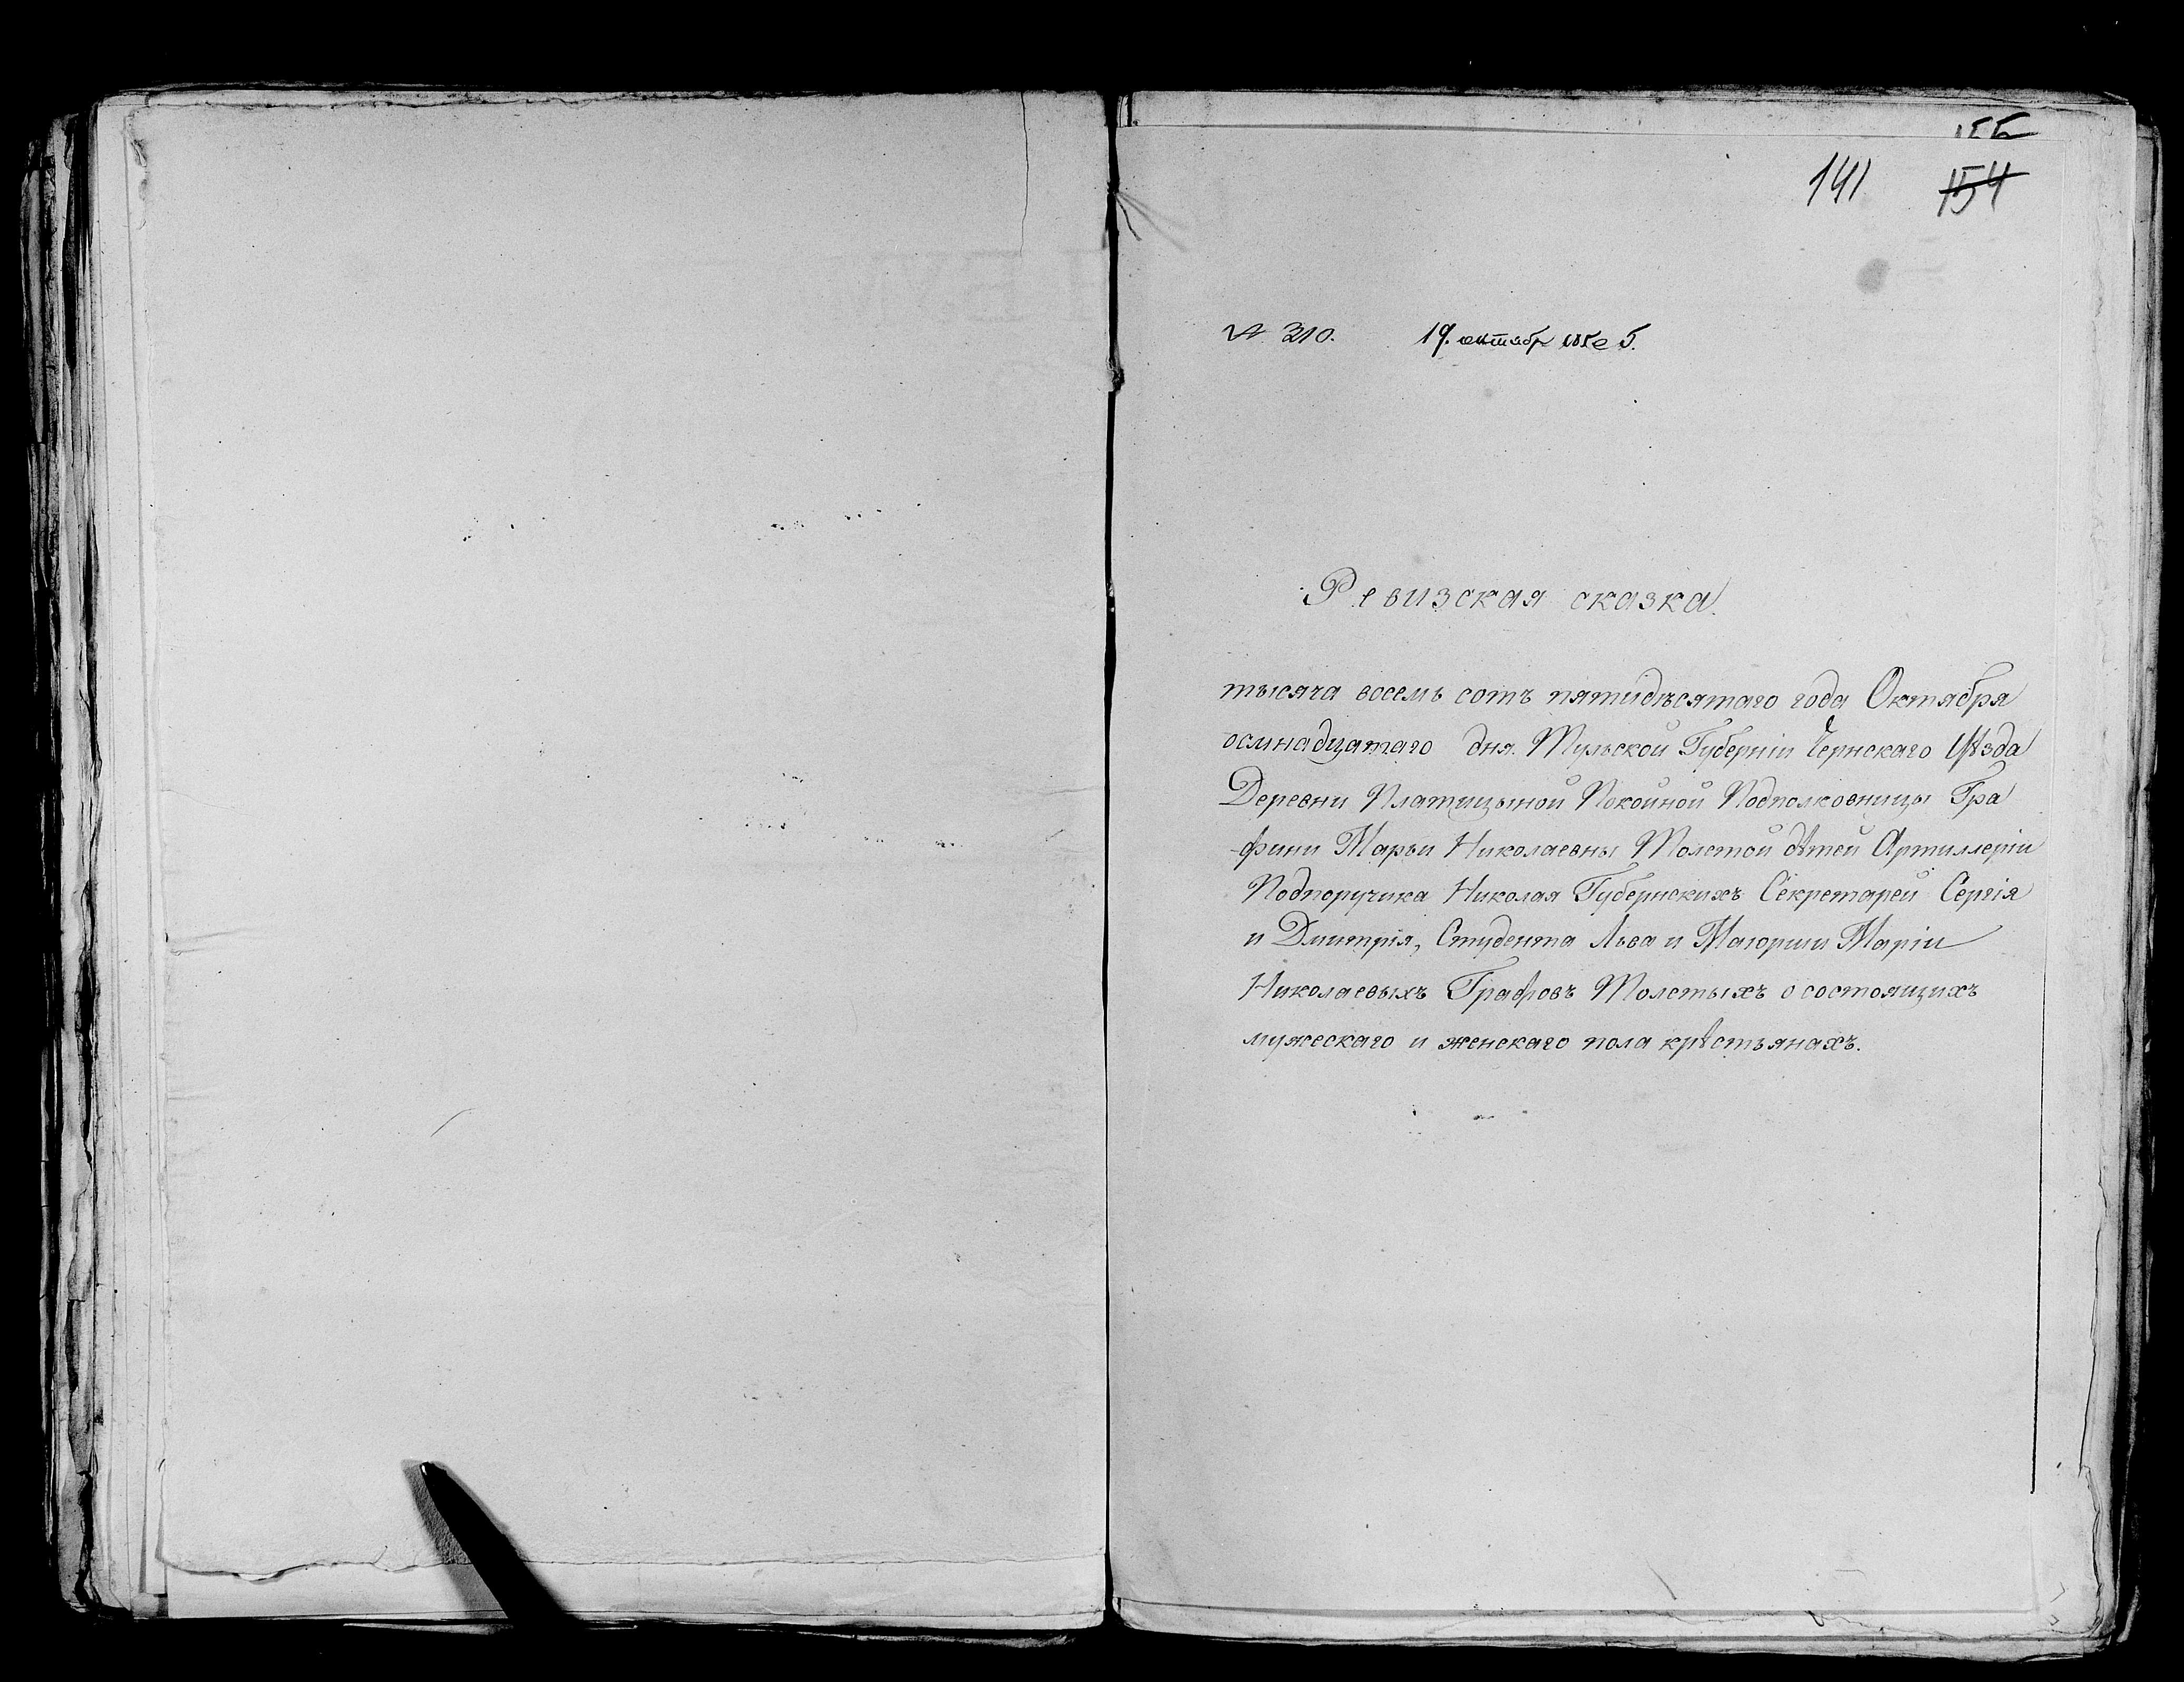 141 154
№ 310. 19. октябр 1850 г.
Ревизская сказка.
тысяча восемь сотъ пятидѣсятаго года Октября
осмнадцатаго дня. Тульской Губерніи Чернскаго Уѣзда
Деревни Платицыной Покойной Подполковницы Гра
фини Марьи Николаевны Толстой дѣтей Артиллеріи
Подпоручика Николая Губернскихъ Секретарей Сергія
и Дмитрія, Студента Льва и Маіорши Маріи
Николаевыхъ Графовъ Толстыхъ о состоящихъ
мужескаго и женскаго пола крѣстьянахъ.